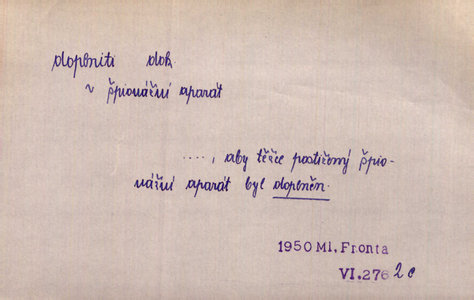 doplniti dok
~ špionážní aparát
...., aby těžce postižený špio-
nážní aparát byl doplněn.
1950 Ml. Fronta
VI.276 2c